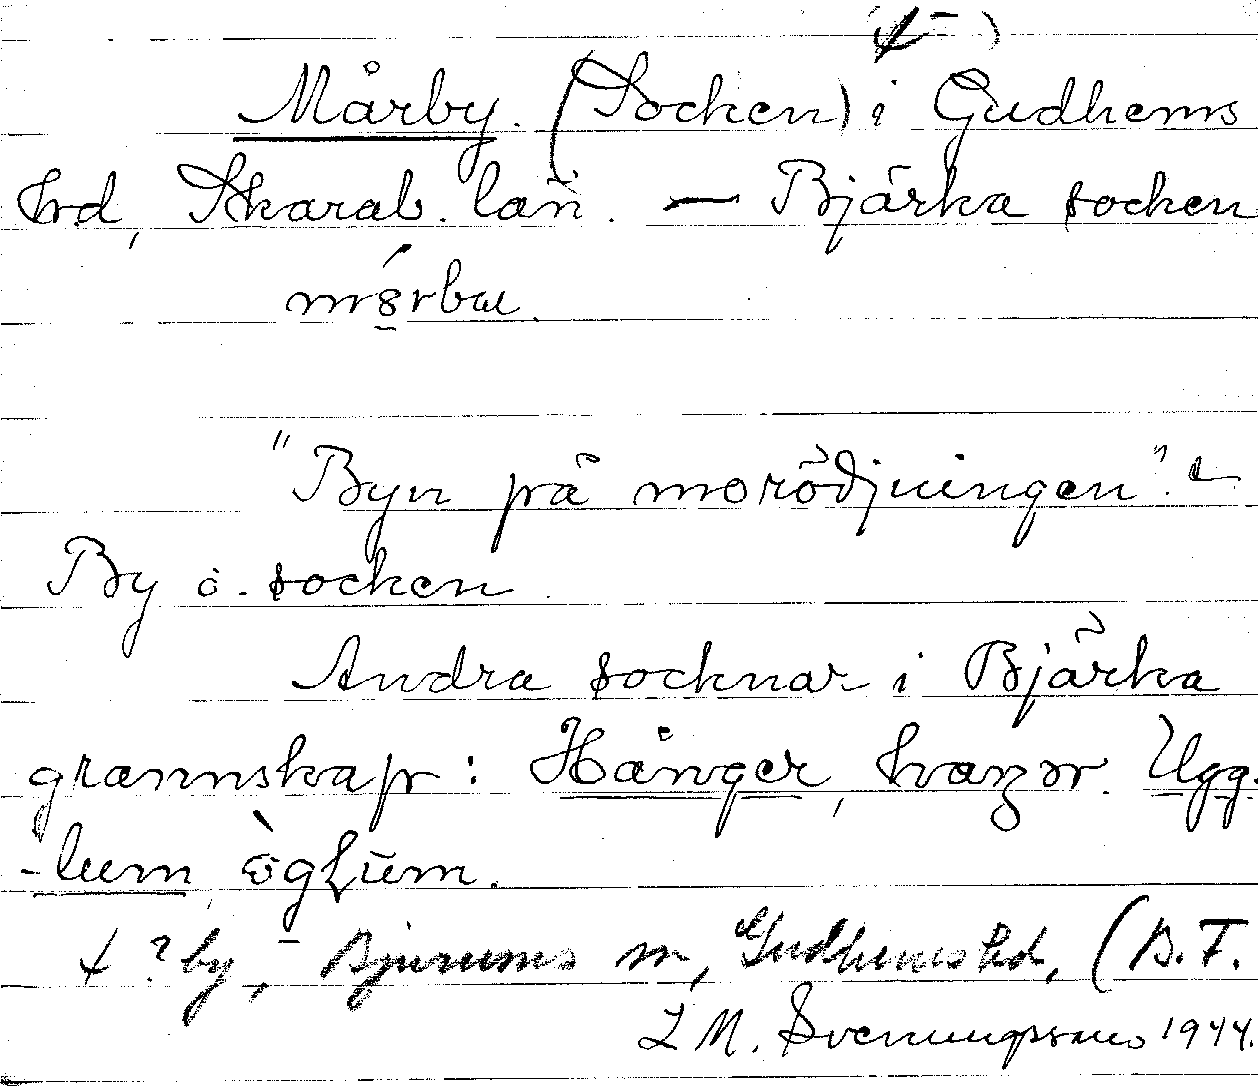 Mårby. (Socken) i Gudhems
hrd, Skarab. län. — Bjärka socken
"Byn på moröd̶jningen".
By o. socken
Andra socknar i Bjärka
grannskap: Hånger, Ugg-
-lum,
? by, Bjurums sn, Gudhems hd, (B.F.
Z M. Svenungsson 1944.